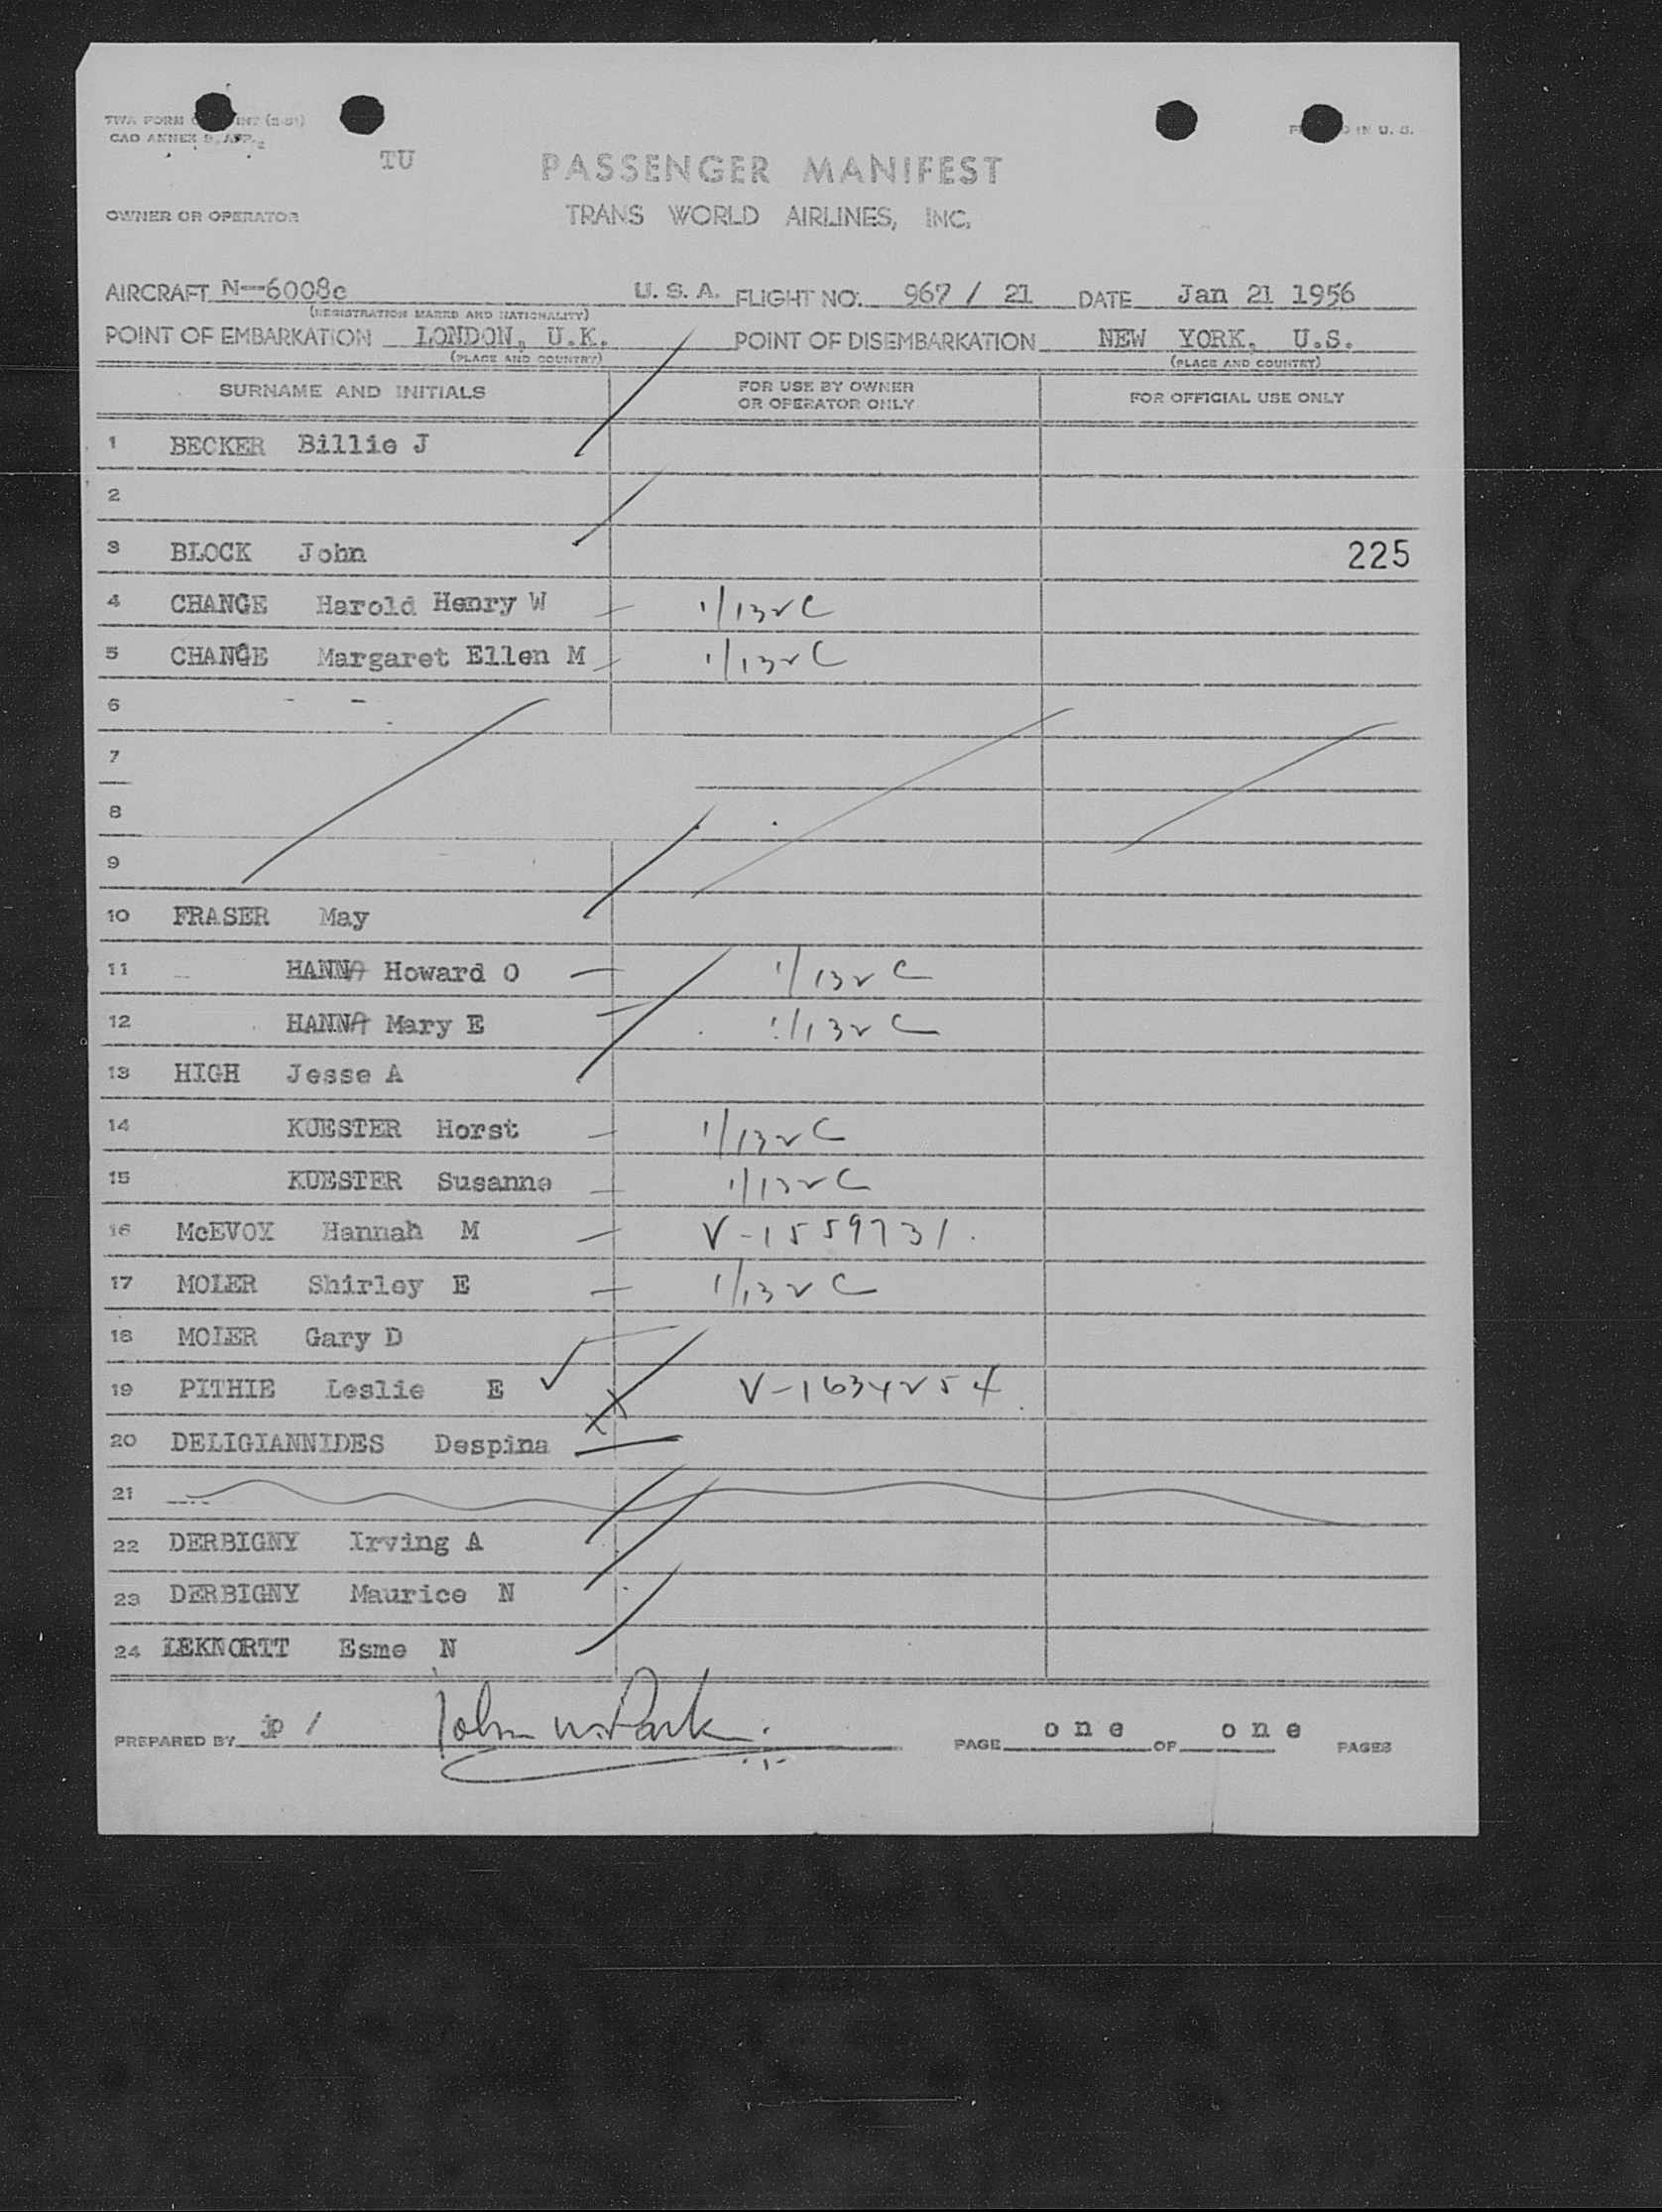 TWA FORM INT (2-51)
CAO ANNEX 9, APP. 2
IN U. S.
TU
PASSENGER MANIFEST
OWNER OR OPERATOR
TRANS WORLD AIRLINES, INC.
AIRCRAFT N-6008c U. S. A. FLIGHT NO. 967 / 21 DATE Jan 21 1956
(REGISTRATION MARKS AND NATIONALITY)
POINT OF EMBARKATION LONDON, U.K. POINT OF DISEMBARKATION NEW YORK, U.S.
(PLACE AND COUNTRY) (PLACE AND COUNTRY)
SURNAME AND INITIALS FOR USE BY OWNER OR OPERATOR ONLY FOR OFFICIAL USE ONLY
1 BECKER Billie J
2
3 BLOCK John 225
4 CHANGE Harold Henry W 1/132C
5 CHANGE Margaret Ellen M 1/132C
6
7
8
9
10 FRASER May
11 HANNA Howard O 1/132C
12 HANNA Mary E 1/132C
13 HIGH Jesse A
14 KUESTER Horst 1/132C
15 KUESTER Susanne 1/132C
16 McEVOY Hannah M V-1559731.
17 MOLER Shirley E 1/132C
18 MOLER Gary D
19 PITHIE Leslie E V-1634254
20 DELIGIANNIDES Despina
21
22 DERBIGNY Irving A
23 DERBIGNY Maurice N
24 LEKNORTT Esme N
PREPARED BY jp / John W. Park PAGE one OF one PAGES